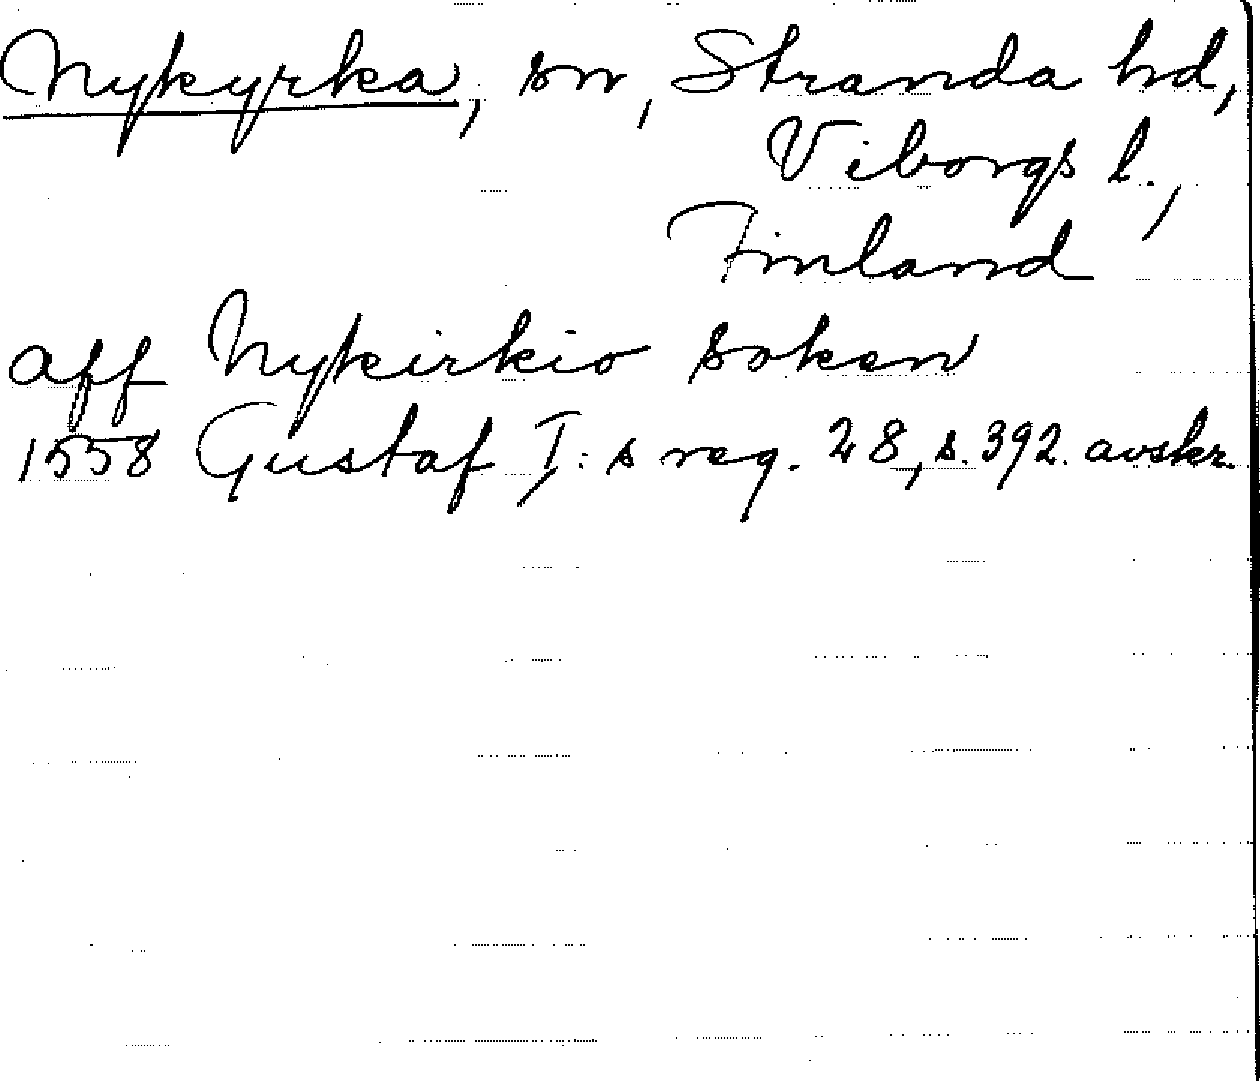 Nykyrka, sn, Stranda hd,
Viborgs l.,
Finland
aff Nykirkio soken
1558 Gustaf I:s reg. 28, s. 392. avskr.